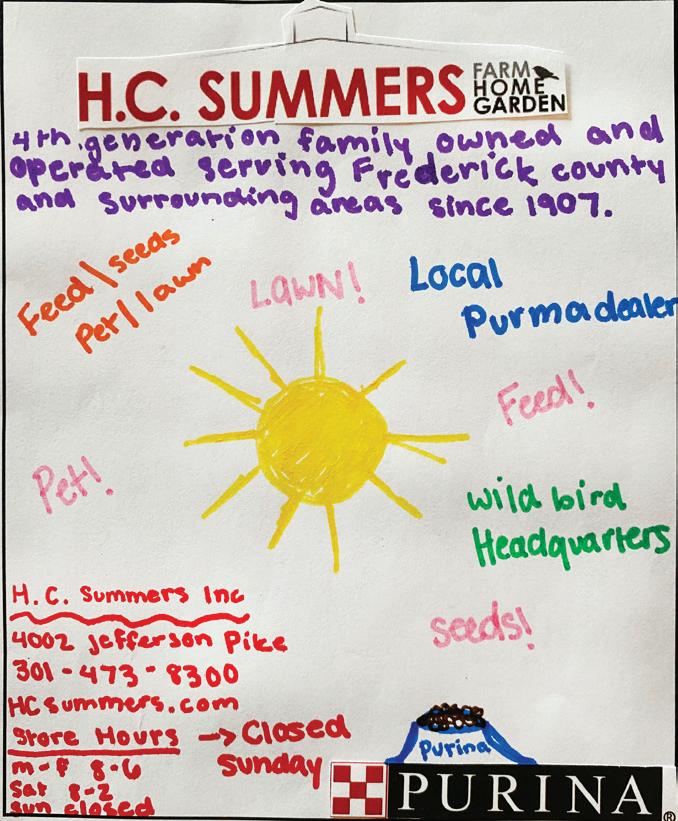 H.C. SUMMERS FARM
HOME
GARDEN
4th generation family owned and
operated serving Frederick county
and surrounding areas since 1907.
Feed/seeds
Pet/lawn
LAWN!
Local
Purina dealer
Feed!
Pet!
wild bird
Headquarters
seeds!
H.C. Summers Inc
4002 Jefferson Pike
301-473-8300
HCsummers.com
Store Hours → Closed
Sunday
m-f 8-6
Sat 8-2
Sun closed
Purina
PURINA®